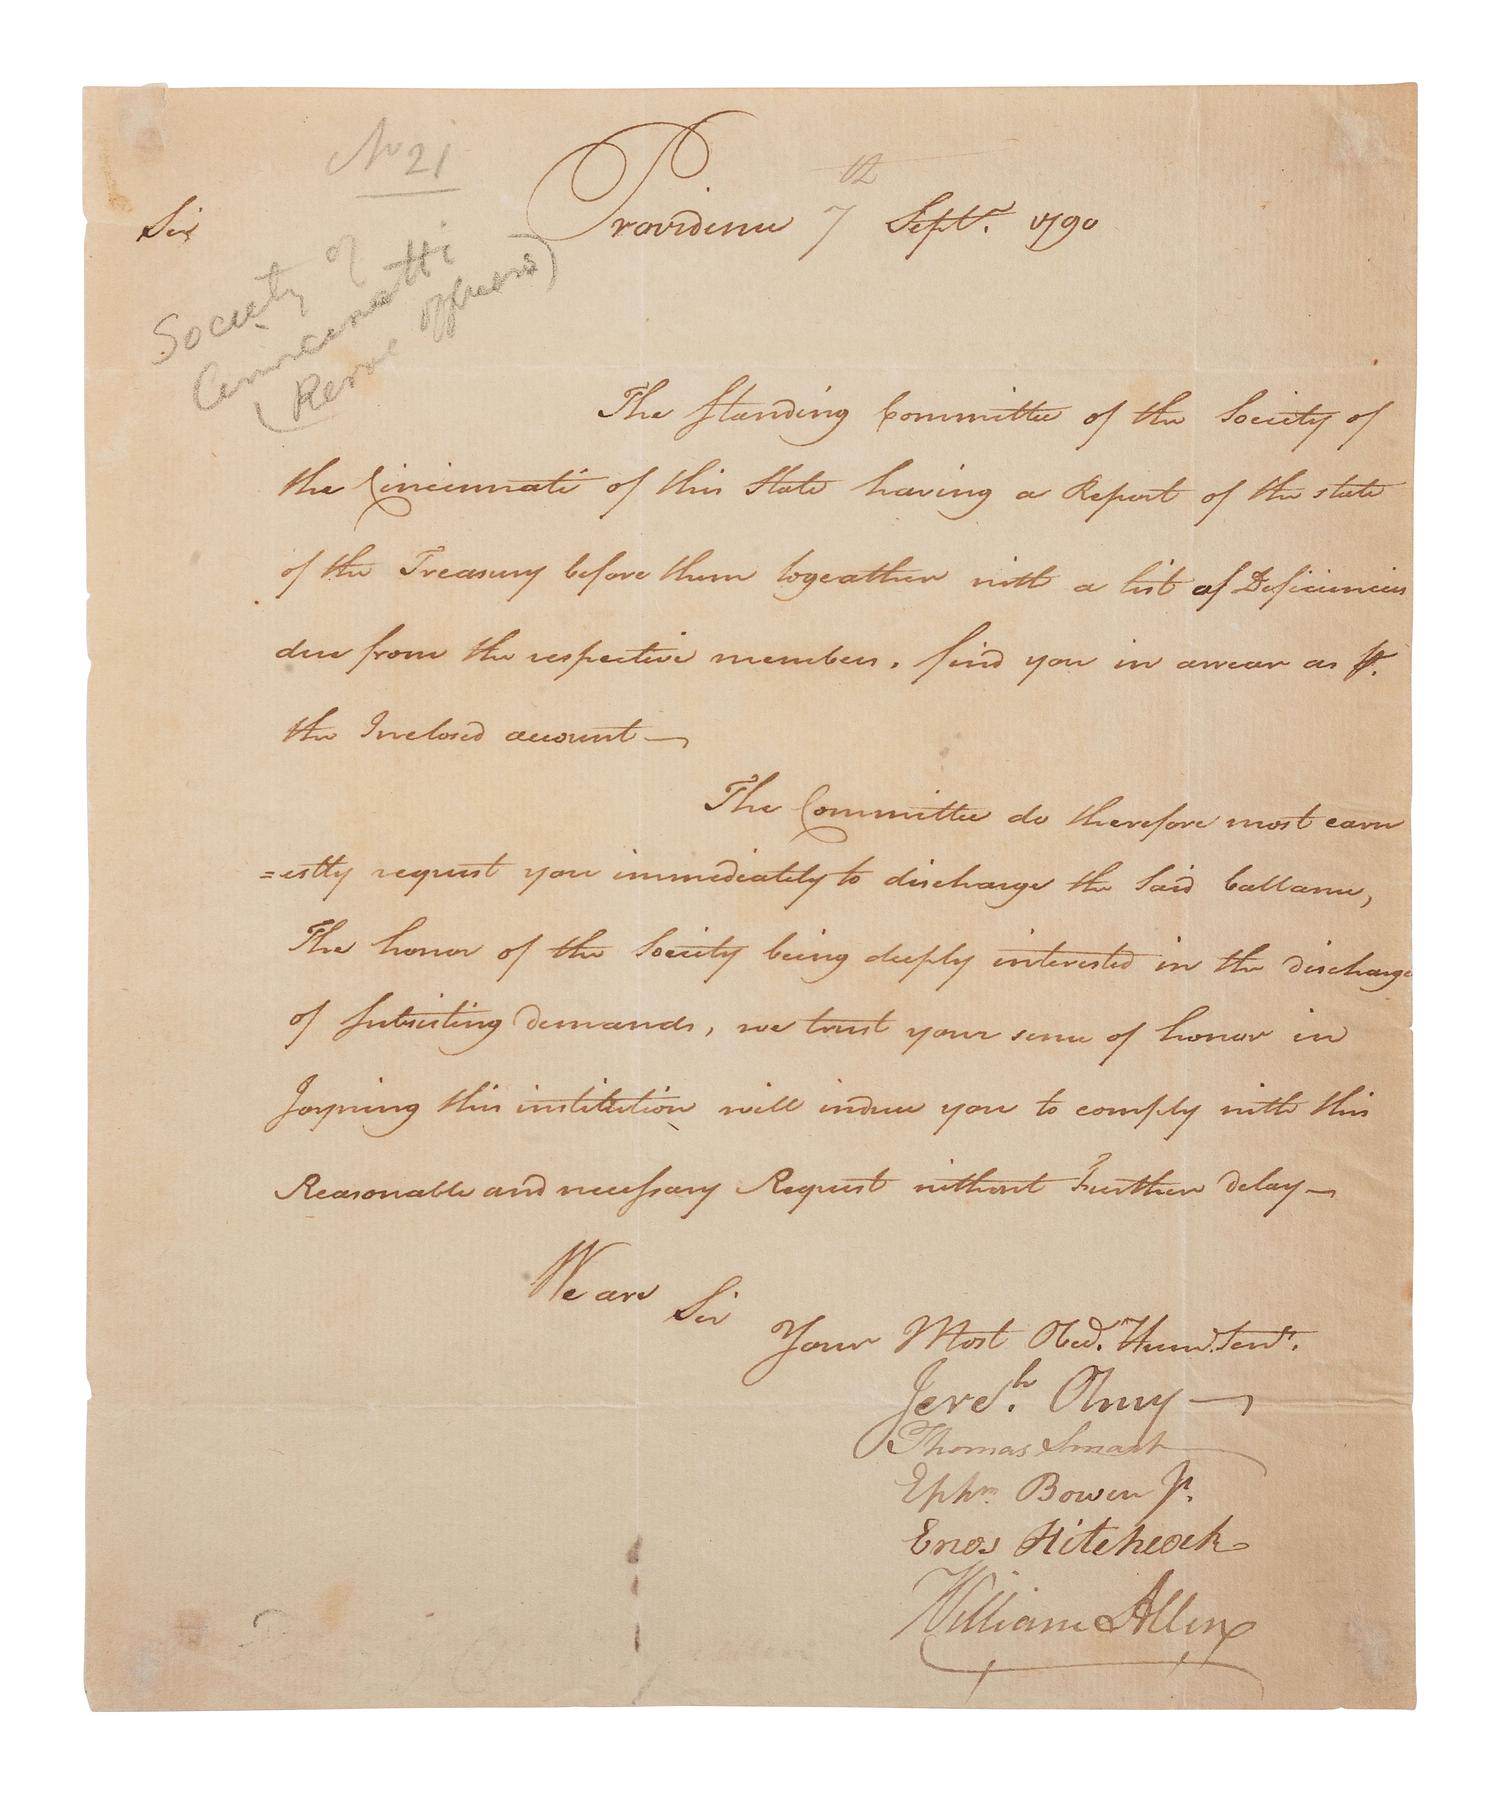 No 21
Providence 7th Septr. 1790
Sir
Society of
Cincinnatti
(Revol Officers)
The Standing Committee of the Society of
the Cincinnati of this State having a Report of the state
of the Treasury before them togeather with a list of Deficiencies
due from the respective members, find you in arrear as pr.
the Inclosed account—
The Committee do therefore most earn
=estly request you immediately to discharge the Said ballance,
The honor of the Society being deeply interested in the discharge
of Subsisting demands, we trust your sense of honor in
Joyning this institution will induce you to comply with this
Reasonable and necessary Request without Further delay—
We are Sir
Your Most Obed. Hum. Servt.
Jereh. Olney
Thomas Smart
Ephm. Bowen Jr.
Enos Hitchcock
William Allen